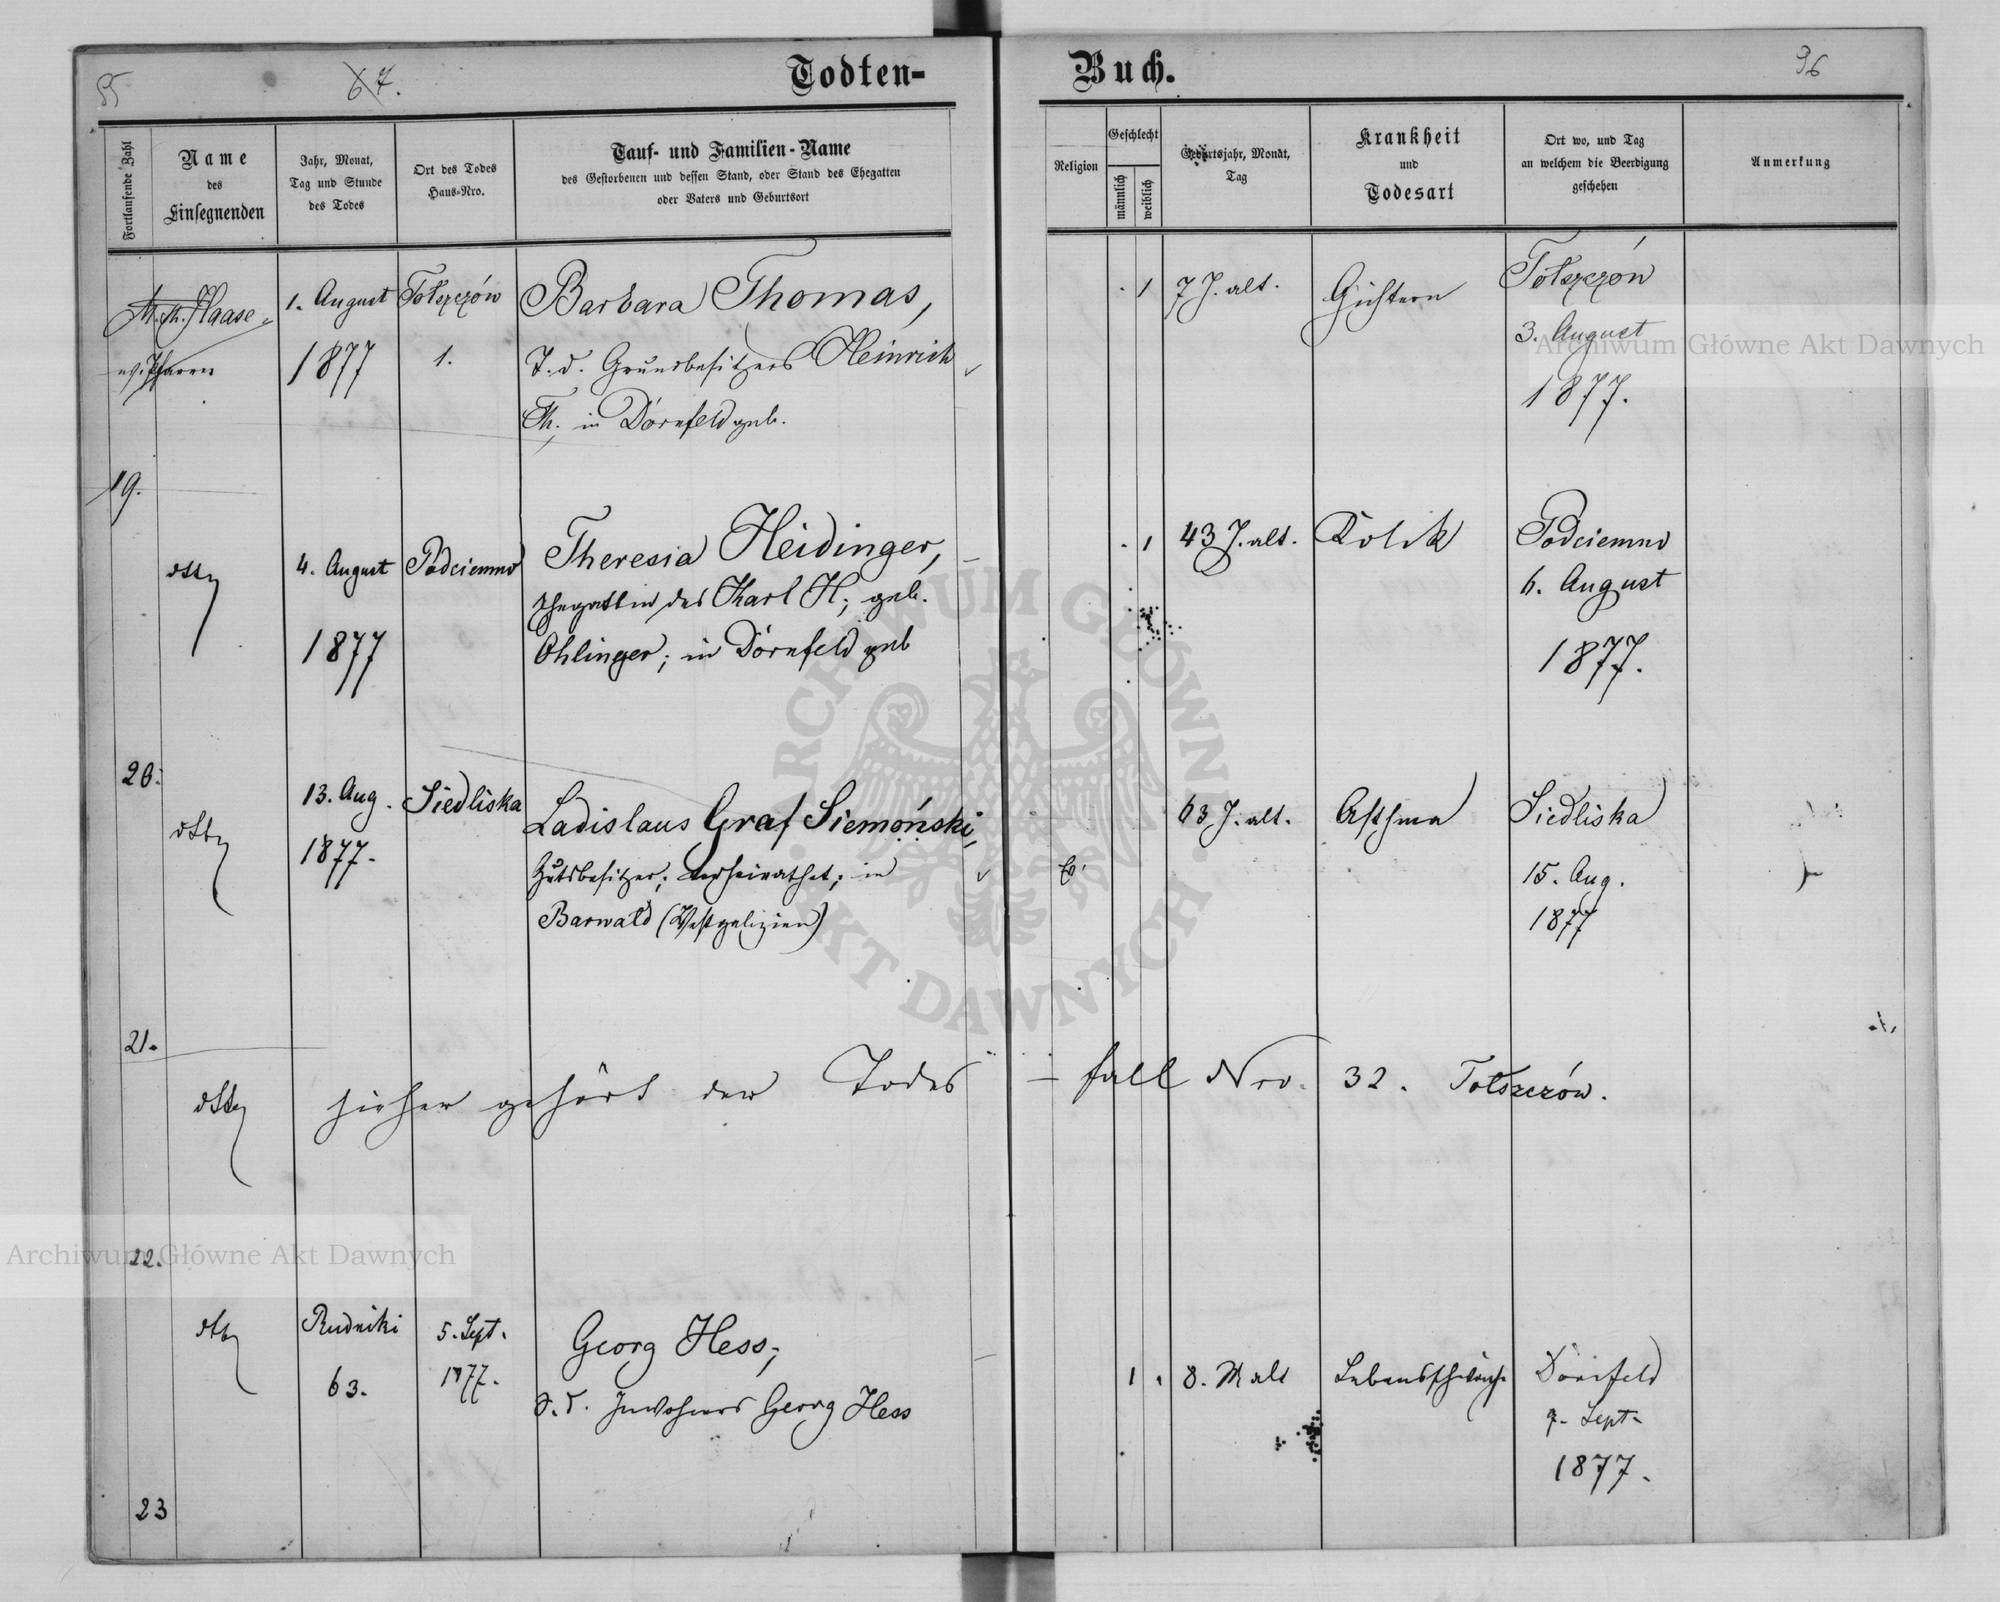 95
67.
Todten-
Buch.
96
Fortlaufende Zahl
Name
des
Einsegnenden
Jahr, Monat,
Tag und Stunde
des Todes
Ort des Todes
Haus-Nro.
Tauf- und Familien-Name
des Gestorbenen und dessen Stand, oder Stand des Ehegatten
oder Vaters und Geburtsort
Religion
Geschlecht
männlich
weiblich
Geburtsjahr, Monat,
Tag
Krankheit
und
Todesart
Ort wo, und Tag
an welchem die Beerdigung
geschehen
Anmerkung
Haase
1. August
1877
Tołszczów
1.
Barbara Thomas,
T. d. Grundbesitzers Heinrich
Th. in Dörnfeld geb.
1
7 J. alt.
Gichtern
Tołszczów
3. August
1877.
19.
dtto
4. August
1877
Podciemno
Theresia Heidinger,
Ehegattin des Karl H; geb.
Ohlinger; in Dörnfeld geb
1
43 J. alt.
Kolik
Podciemno
6. August
1877.
20.
dtto
13. Aug.
1877.
Siedliska
Ladislaus Graf Siemoński,
Gutsbesitzer; verheirathet; in
Barwald (Westgalizien)
63 J. alt.
Asthma
Siedliska
15. Aug.
1877
21.
dtto
hieher gehört der Todes-fall Nro. 32. Tołszczów.
22.
dtto
Rudniki
63.
5. Sept.
1877.
Georg Hess;
S. d. Inwohners Georg Hess
1
8. M alt
Lebensschwäche
Dörnfeld
7. Sept.
1877.
23
Archiwum Główne Akt Dawnych
Archiwum Główne Akt Dawnych
ARCHIWUM GŁÓWNE AKT DAWNYCH